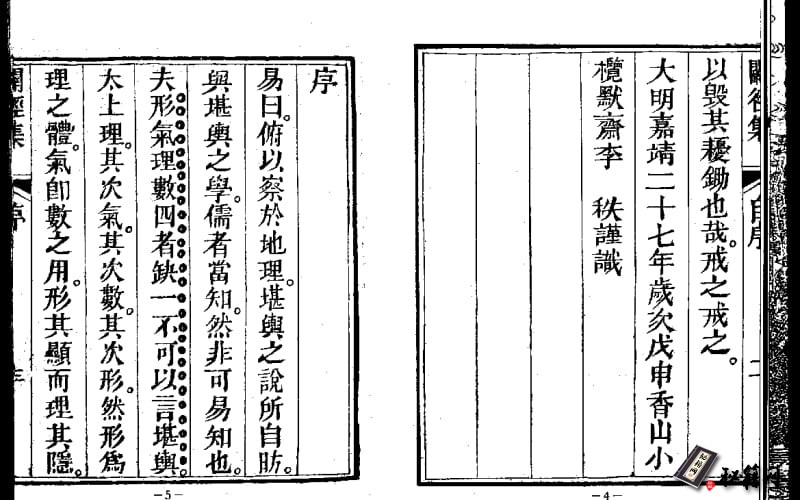 闢徑集
自序
二
以毁其耰鋤也哉。戒之戒之。
大明嘉靖二十七年歲次戊申香山小
欖默齋李 秩謹識
—4—
序
易曰。俯以察於地理。堪輿之說所自昉。
與堪輿之學。儒者當知。然非可易知也。
夫形氣理數四者缺一不可以言堪輿。
太上理。其次氣。其次數。其次形。然形爲
理之體。氣卽數之用。形其顯而理其隱。
闢徑集
序
—5—